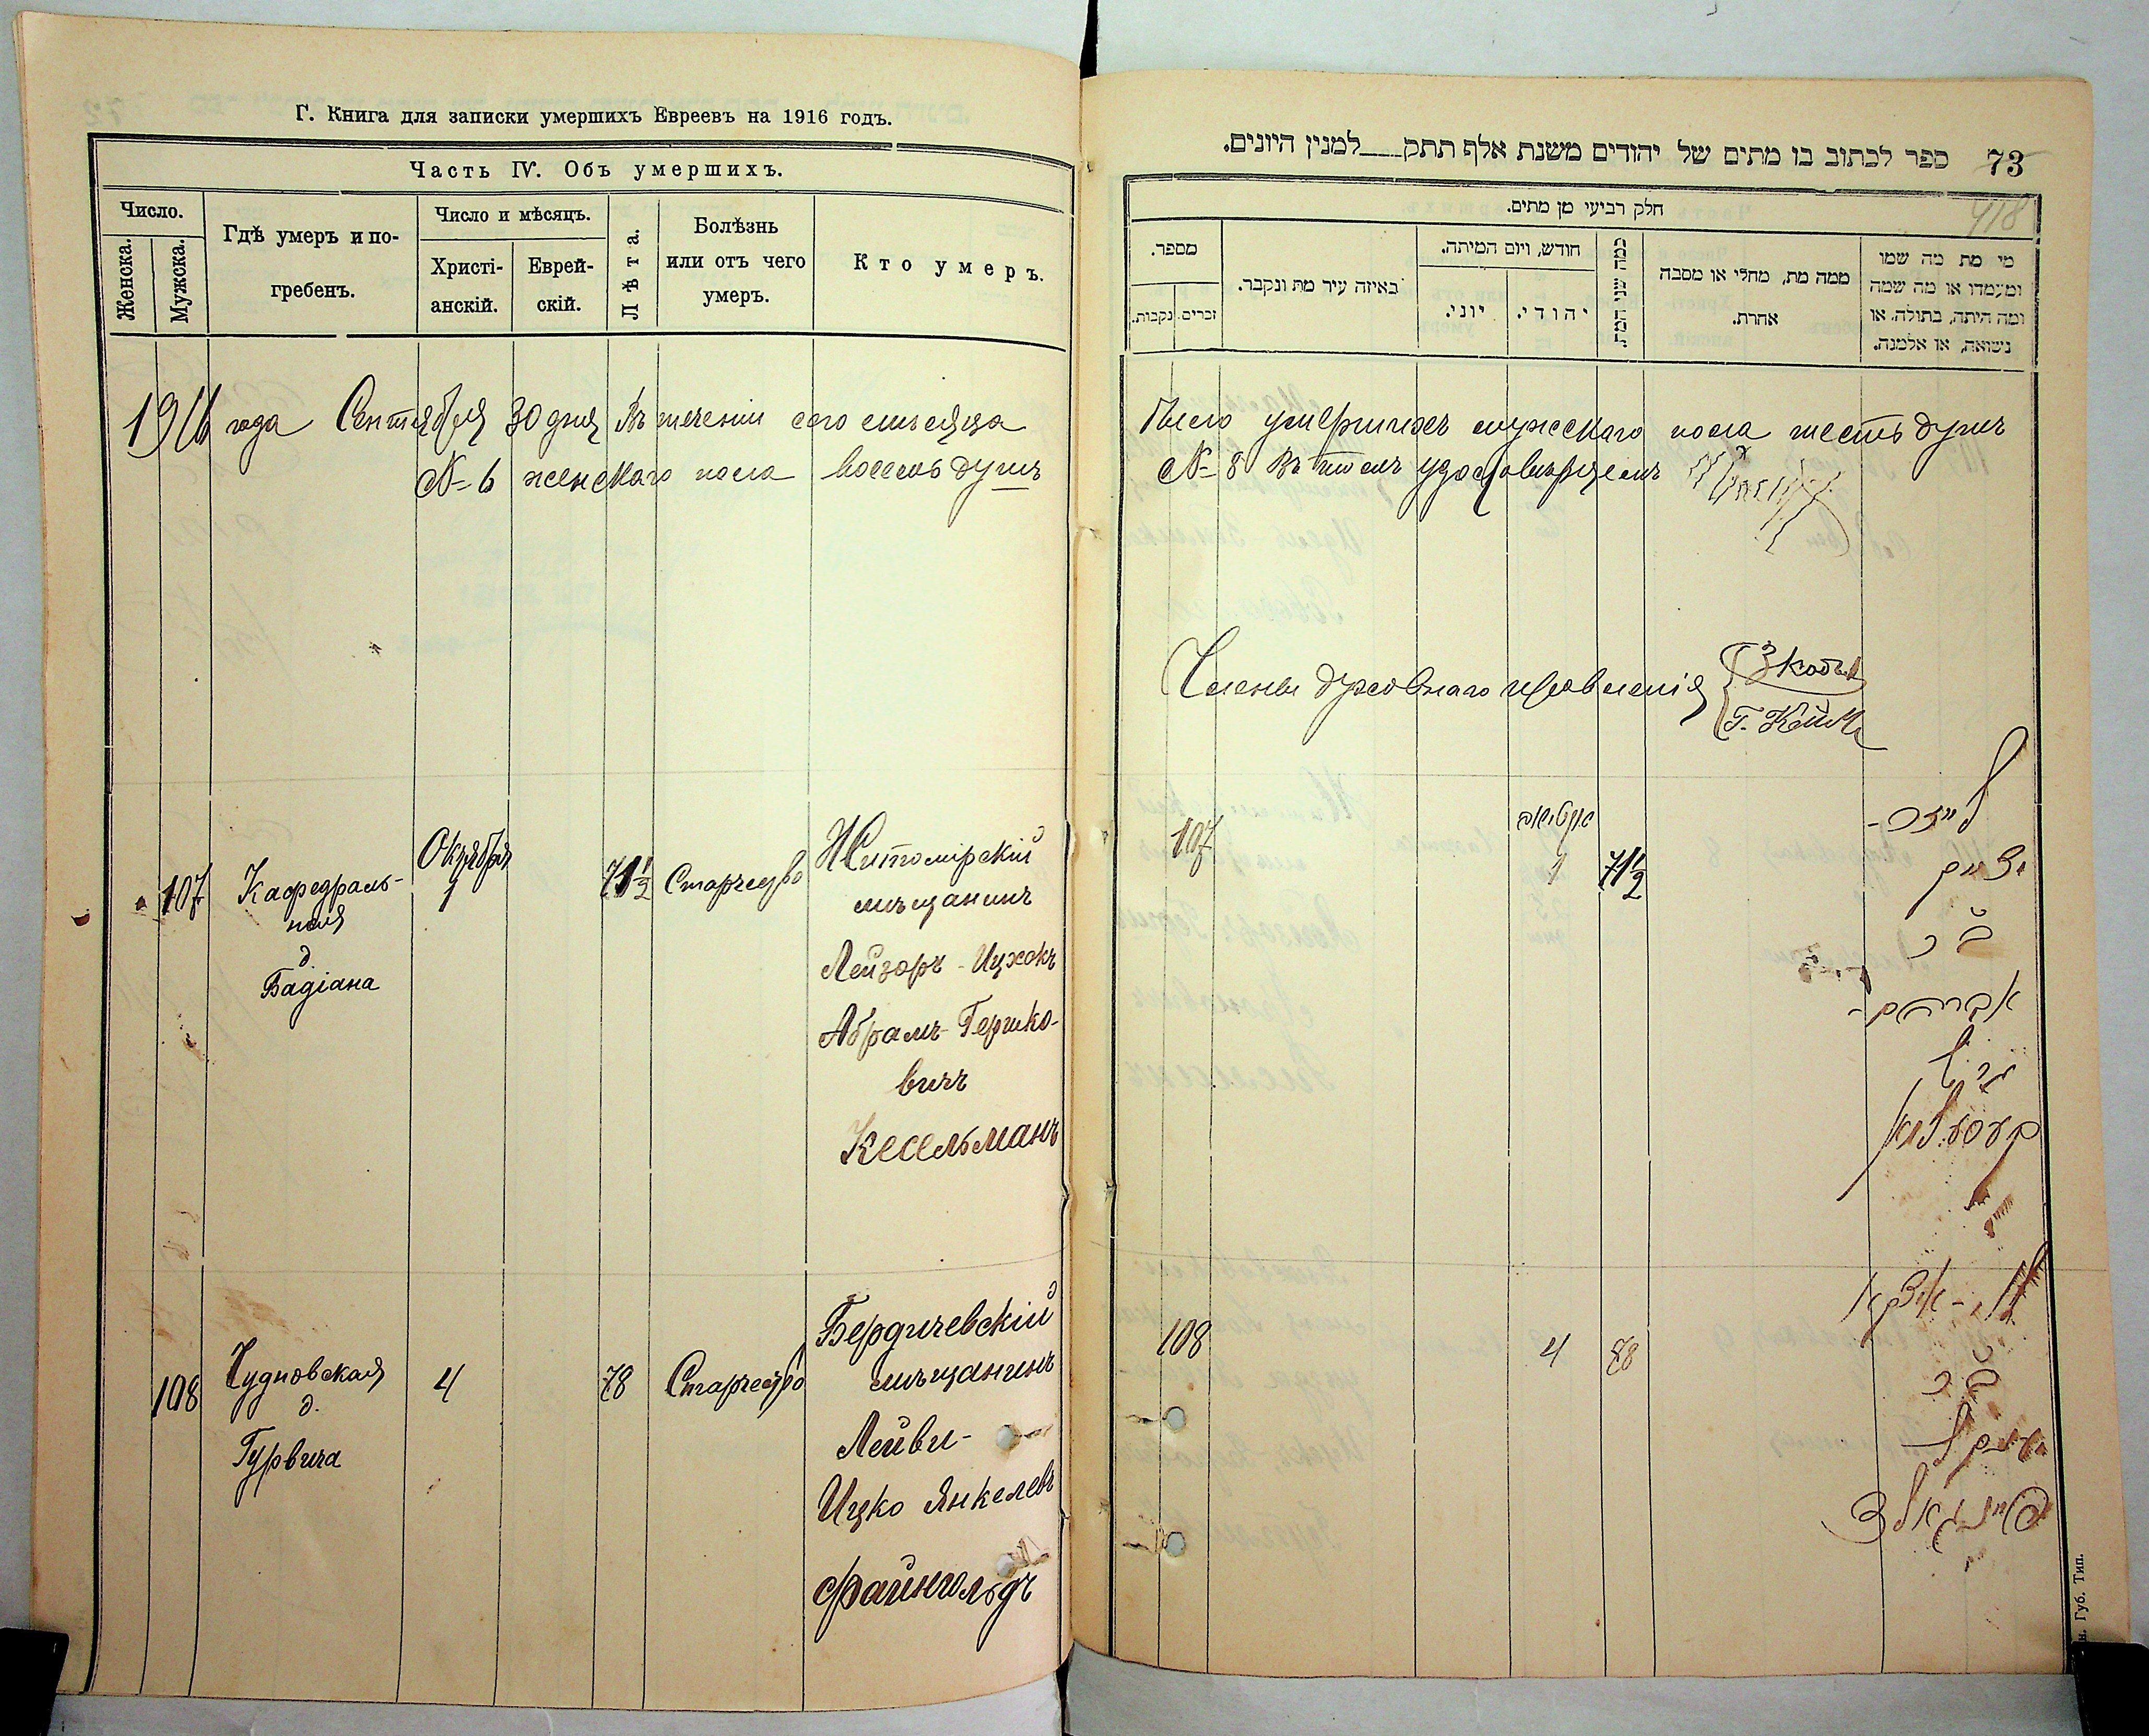 Г. Книга для записки умершихъ Евреевъ на 1916 годъ.
Часть IV. Объ умершихъ.
Число.
Женска.
Мужска.
Гдѣ умеръ и по-
гребенъ.
Число и мѣсяцъ.
Христі-
анскій.
Еврей-
скій.
Лѣта.
Болѣзнь
или отъ чего
умеръ.
Кто умеръ.
1916 года Сентября 30 дня Въ теченіи сего мѣсяца
№ 6 женскаго пола восемь душъ
107
Кафедраль-
ная
д.
Бадіана
Октября
1
71 1/2
Старчество
Житомірскій
мѣщанинъ
Лейзоръ - Ицхокъ
Абрамъ-Гершко-
вичъ
Кесельманъ
108
Чудновская
д.
Гурвича
4
78
Старчество
Бердичевскій
мѣщанинъ
Лейви-
Ицко Янкелевъ
Файнгольдъ
ספר לכתוב בו מתים של יהודים משנת אלף תתק___למנין היונים.
73
418
חלק רביעי מן מתים.
מספר.
זכרים.
נקבות.
באיזה עיר מת ונקבר.
חודש, ויום המיתה.
יוני.
יהודי.
כמה שני המת.
ממה מת, מחלי או מסבה
אחרת.
מי מת מה שמו
ומעמדו או מה שמה
ומה היתה, בתולה, או
נשואה, או אלמנה.
умершихъ мужскаго пола шесть душъ
№ 8 Въ томъ удостовѣряемъ
Члены духовнаго правленія
107
1
71 1/2
יצחק
ב"ר
אברהם-
הירש
קעסעלמאן
108
4
78
לוי-איצקא
ב"ר
יאנקל
פיינגאלד
Губ. Тип.